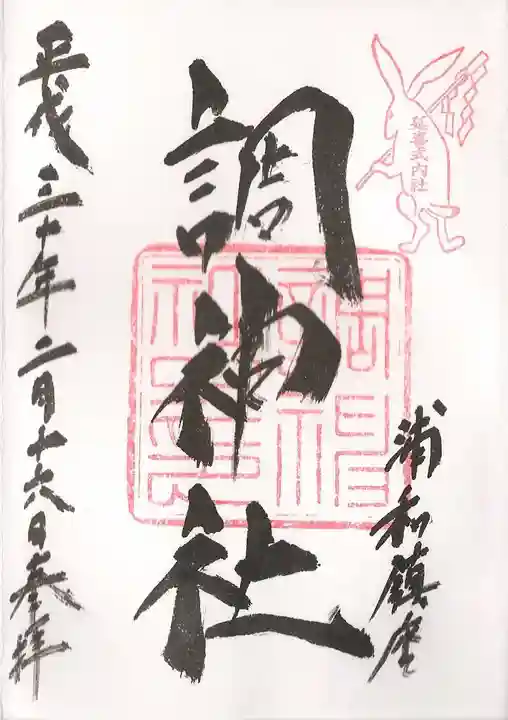 延喜式内社
浦和鎮座
調神社
平成三十年二月十六日奉拝